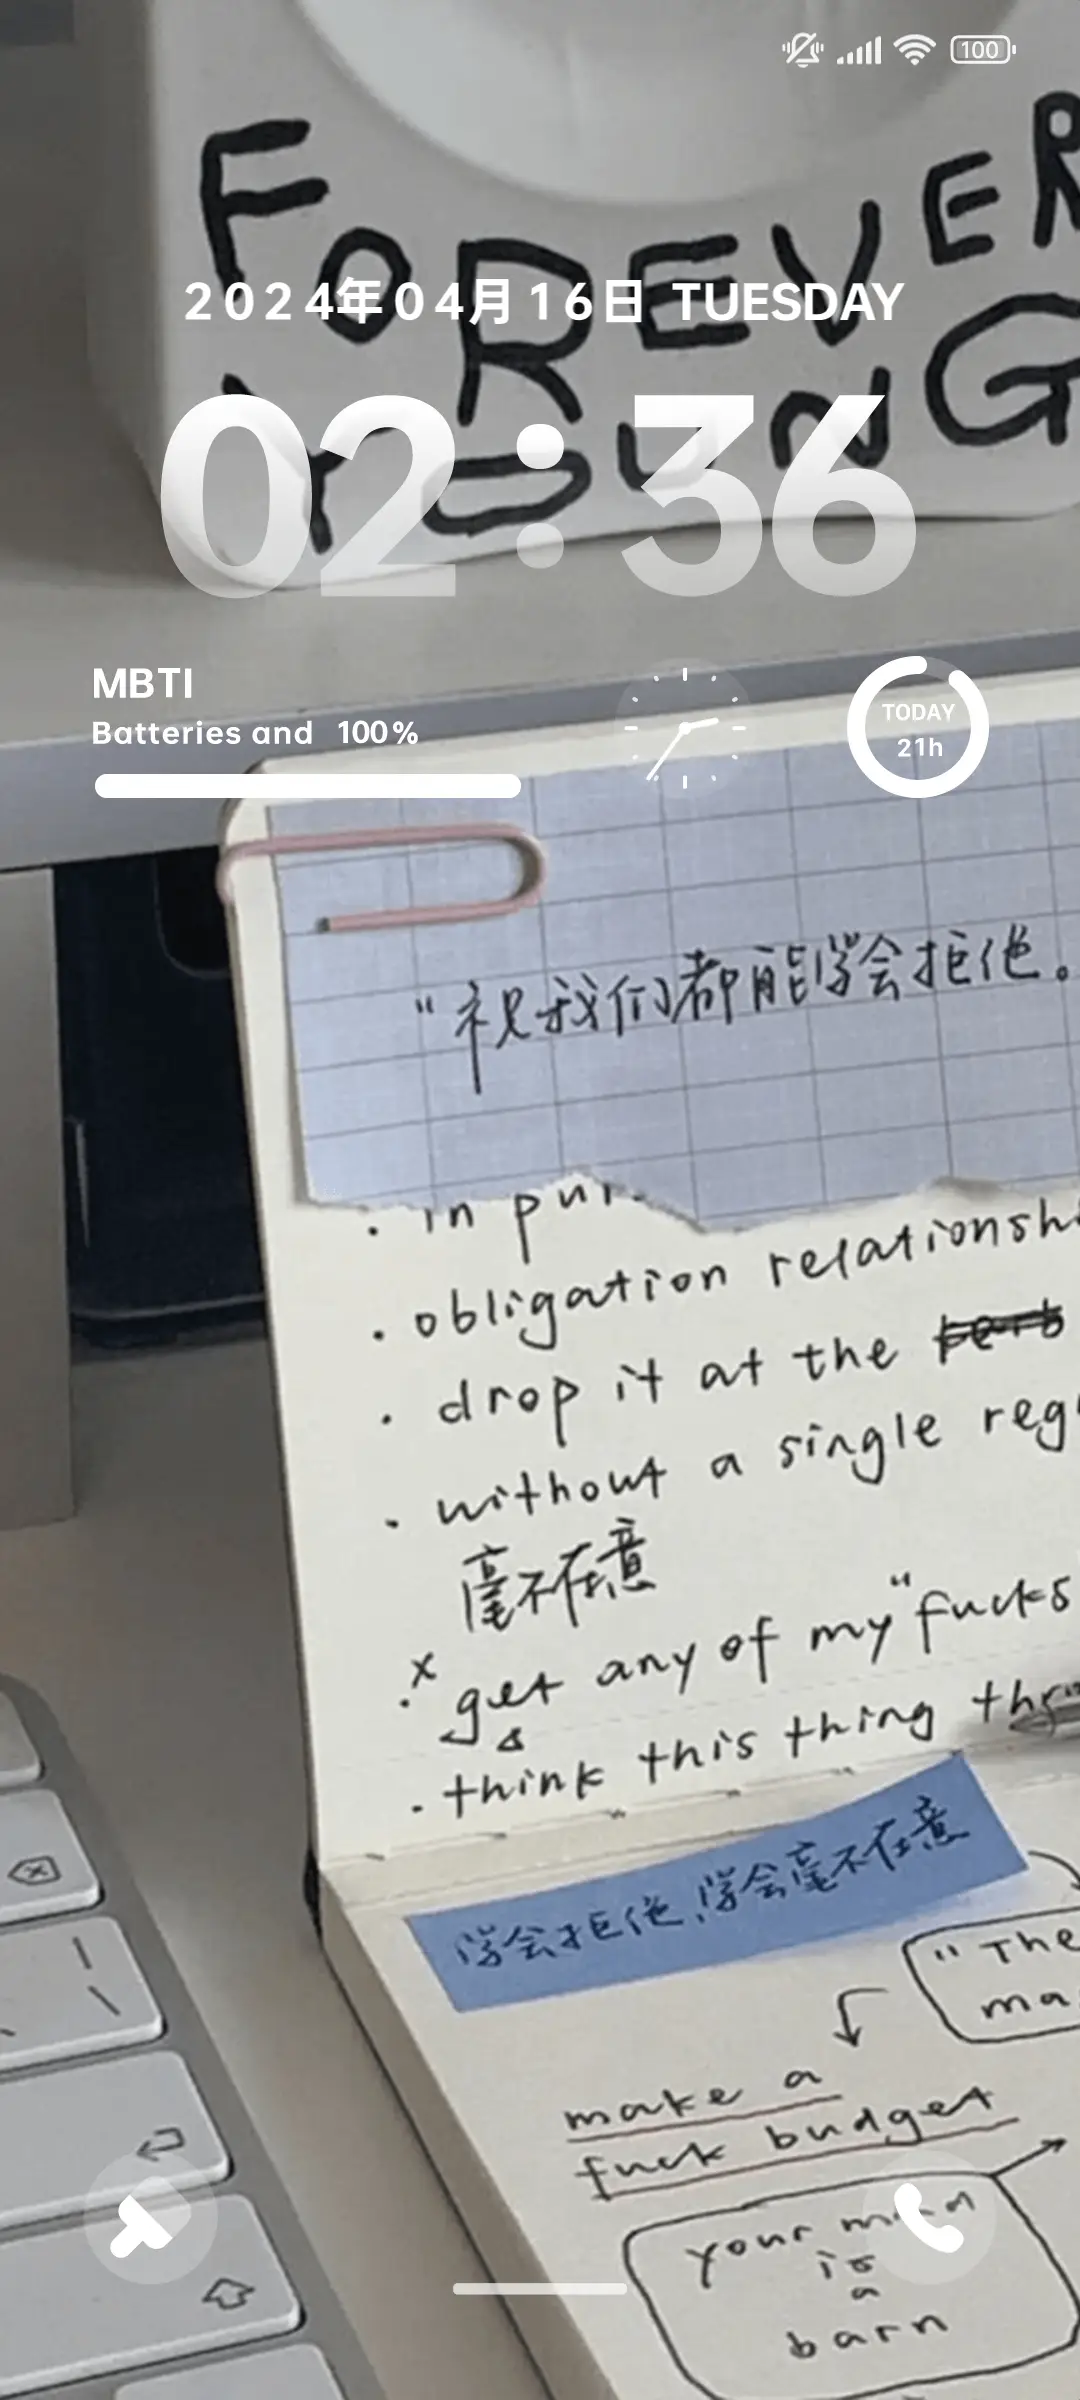 100
FOREVER
YOUNG
2024年04月16日 TUESDAY
02:36
MBTI
Batteries and 100%
TODAY
21h
“祝我们都能学会拒绝。
· in pur
· obligation relationshi
· drop it at the
· without a single reg
毫不在意
x
· get any of my "fucks
· think this thing thr
学会拒绝,学会毫不在意
"The
ma
make a
fuck budget
your mind
is
a
barn